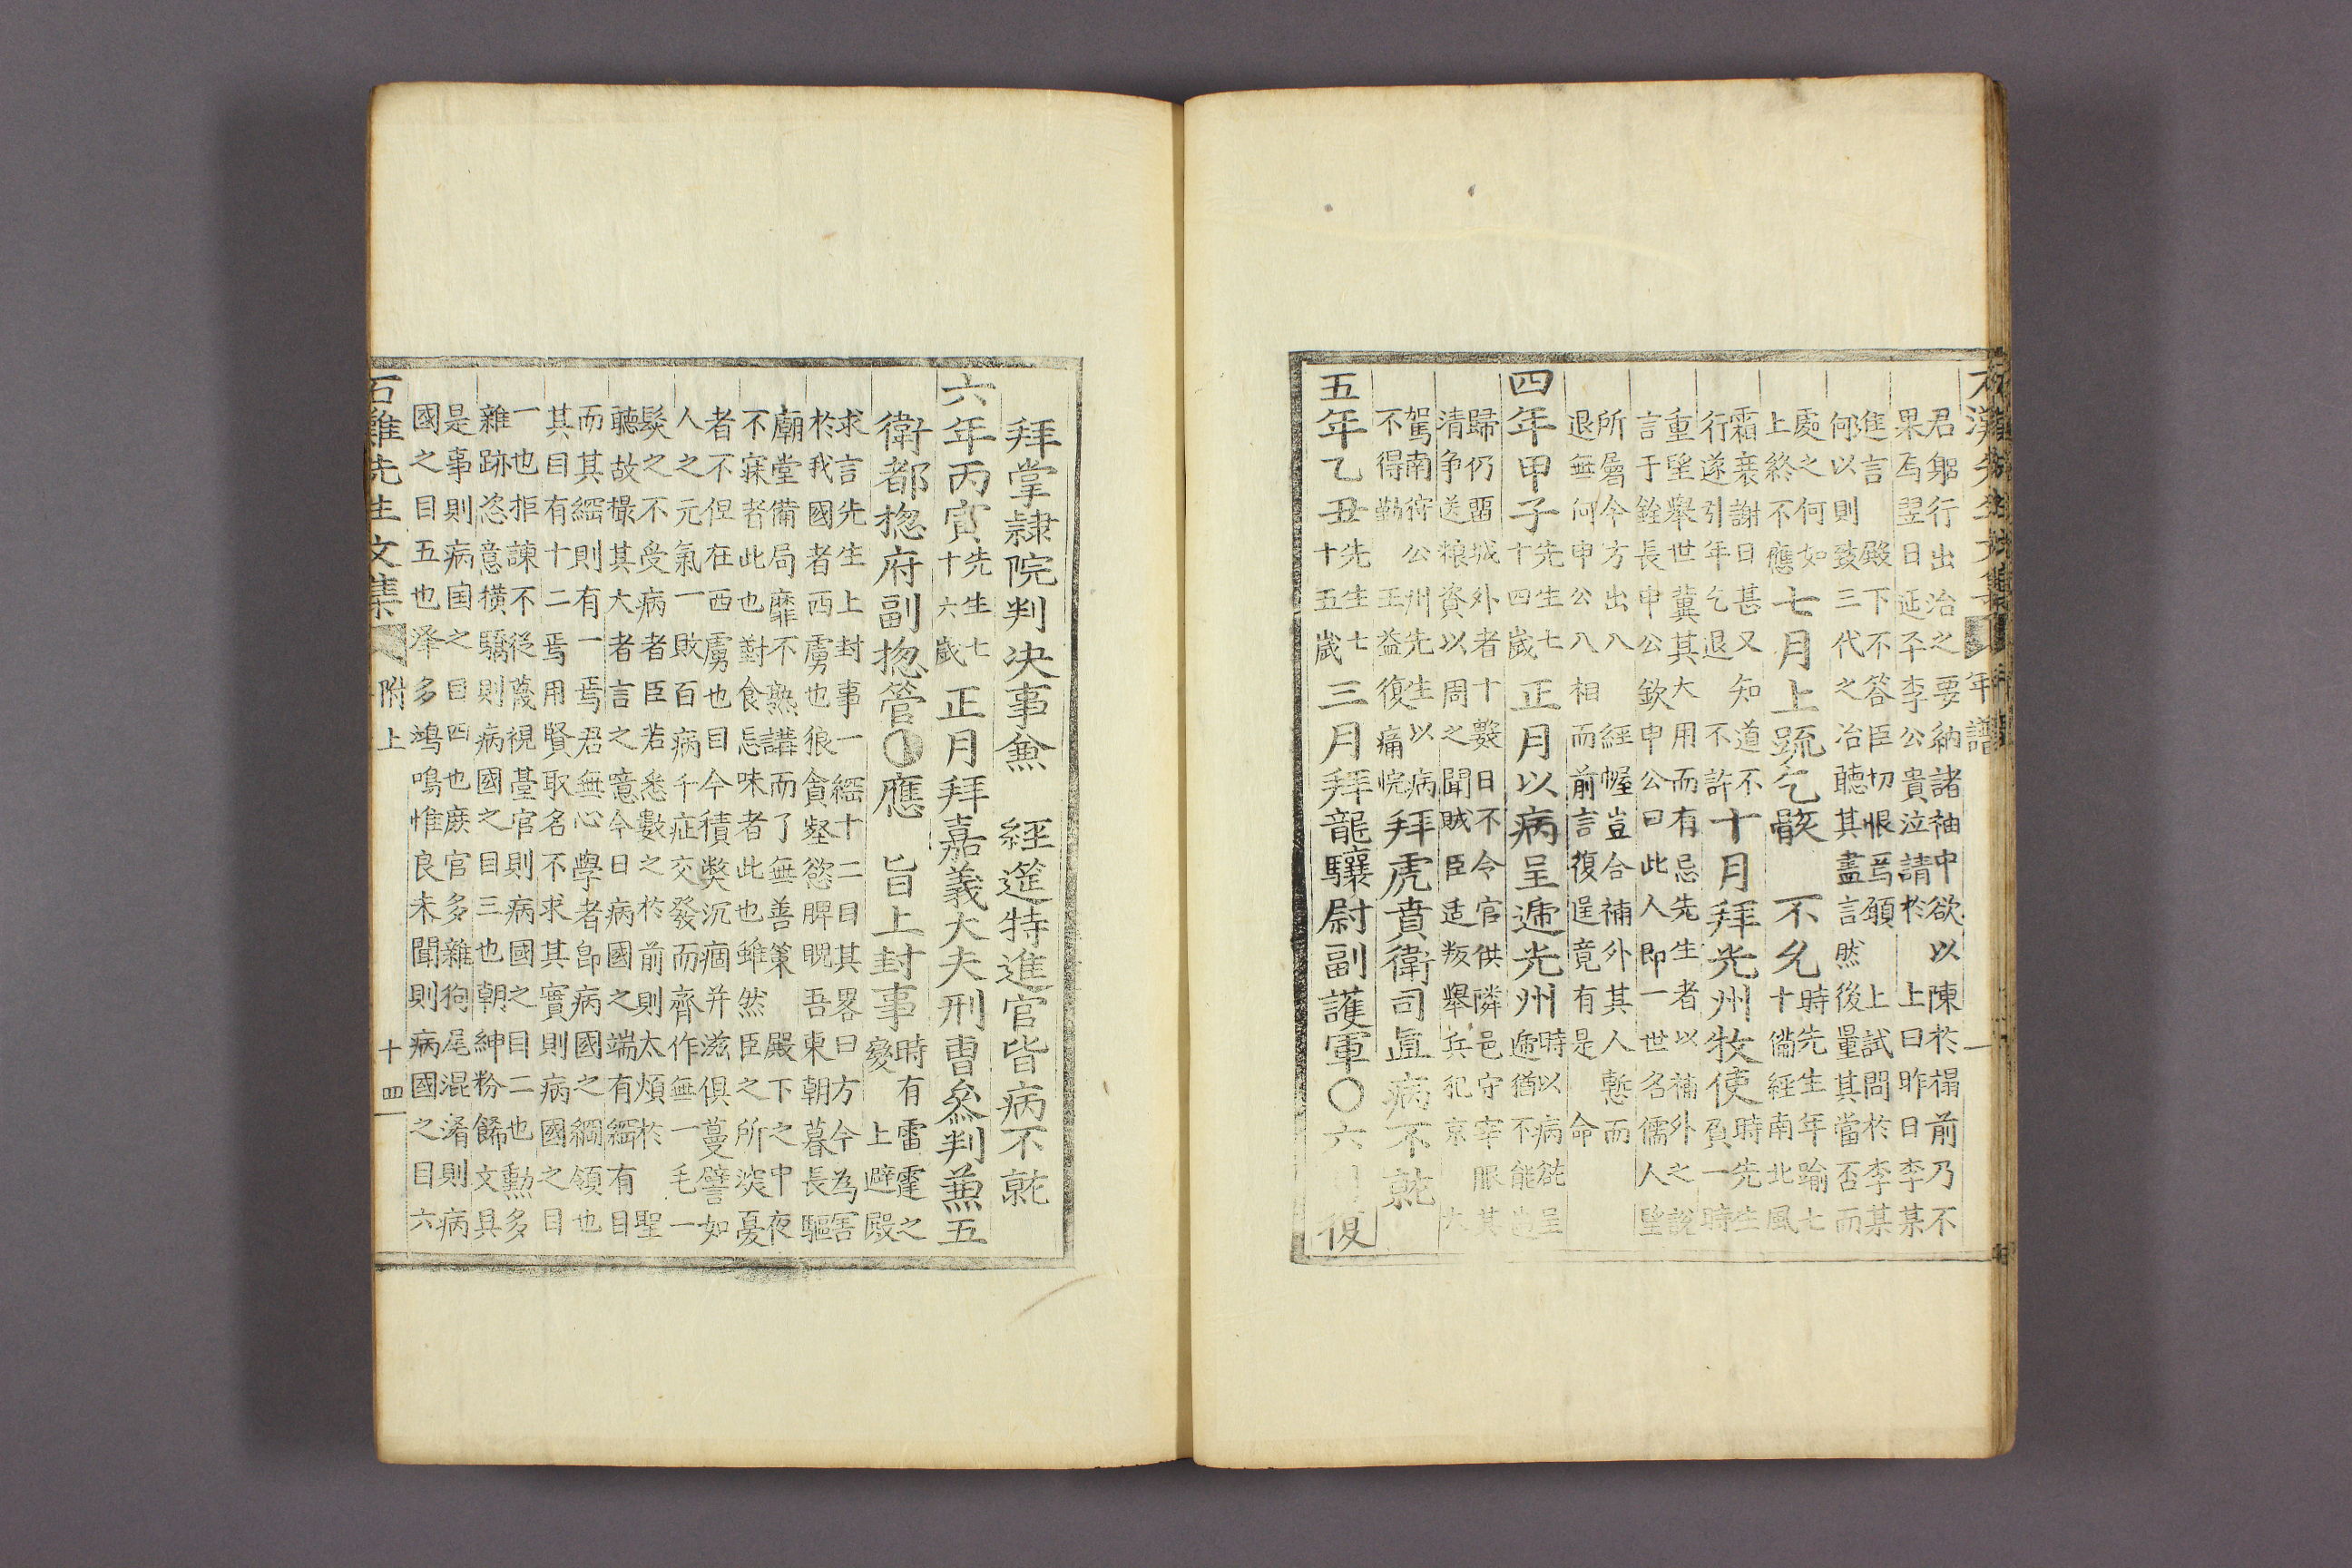 君躬行出治之要納諸袖中欲以陳於榻前乃不
果焉翌日延平李公貴泣請於 上曰昨日李某
進言 殿下不答臣切恨焉願 上試問於李某
何以則致三代之治聽其盡言然後量其當否而
處之何如
上終不應
七月上疏乞骸 不允
時先生年踰七
十備經南北風
霜衰謝日甚又知道不
行遂引年乞退 不許
十月拜光州牧使
時先生
負一時
重望擧世冀其大用而有忌先生者以補外之說
言于銓長申公欽申公曰此人即一世名儒人望
所屬今方出入 經幄豈合補外其人慙而
退無何申公入相而前言復逞竟有是 命
四年甲子
先生七
十四歲
正月以病呈遞光州
時以病欲呈
遞猶不能
歸仍留城外者十數日不令官供隣邑守宰
淸爭送粮資以周之聞賊臣适叛擧兵犯京大
駕南狩公州先生以病
不得勤王益復痛惋
拜虎賁衛司直病不就
五年乙丑
先生七
十五歲
三月拜龍驤尉副護軍○六月復
拜掌隷院判決事兼 經筵特進官皆病不就
六年丙寅
先生七
十六歲
正月拜嘉義大夫刑曹參判兼五
衛都摠府副摠管○應 旨上封事
時有雷霆之
變 上避殿
求言先生上封事一綱十二目其畧曰方今爲害
於我國者西虜也狼貪壑慾脾睨吾東朝暮長驅
廟堂備局靡不熟講而了無善策 殿下之中夜
不寐者此也對食忘味者此也雖然臣之所深憂
者不但在西虜也目今積弊沉痼幷滋俱蔓譬如
人之元氣一敗百病千症交發而齊作無一毛一
髮之不受病者臣若悉數之於前則太煩於 聖
聽故撮其大者言之噫今日病國之端有綱有目
而其綱則有一焉君無心學者卽病國之綱領也
其目有十二焉用賢取名不求其實則病國之目
一也拒諫不從蔑視臺官則病國之目二也勳多
雜跡恣意橫驕則病國之目三也朝紳粉餙文具
是事則病国之目四也庶官多雜狗尾混淆則病
國之目五也澤多鴻鳴惟良未聞則病國之目六
石灘先生文集 附上 十四